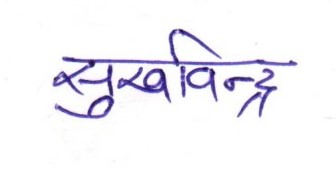 सुखविन्द्र